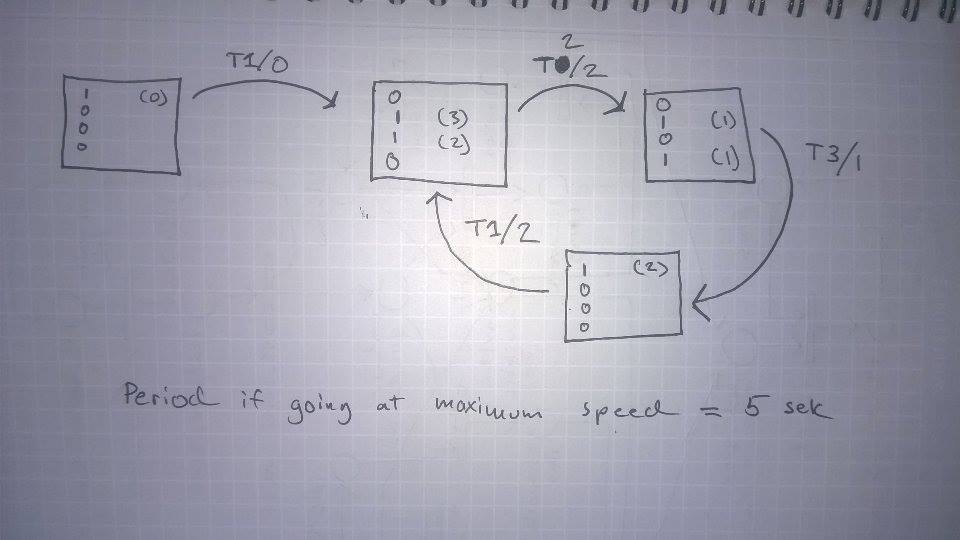 T1/0
1 (0)
0
0
0
0
1 (3)
1 (2)
0
2
T/2
0
1 (1)
0
1 (1)
T3/1
T1/2
1 (2)
0
0
0
Period if going at maximum speed = 5 sek